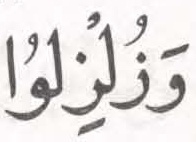 وَزُلْزِلُوا